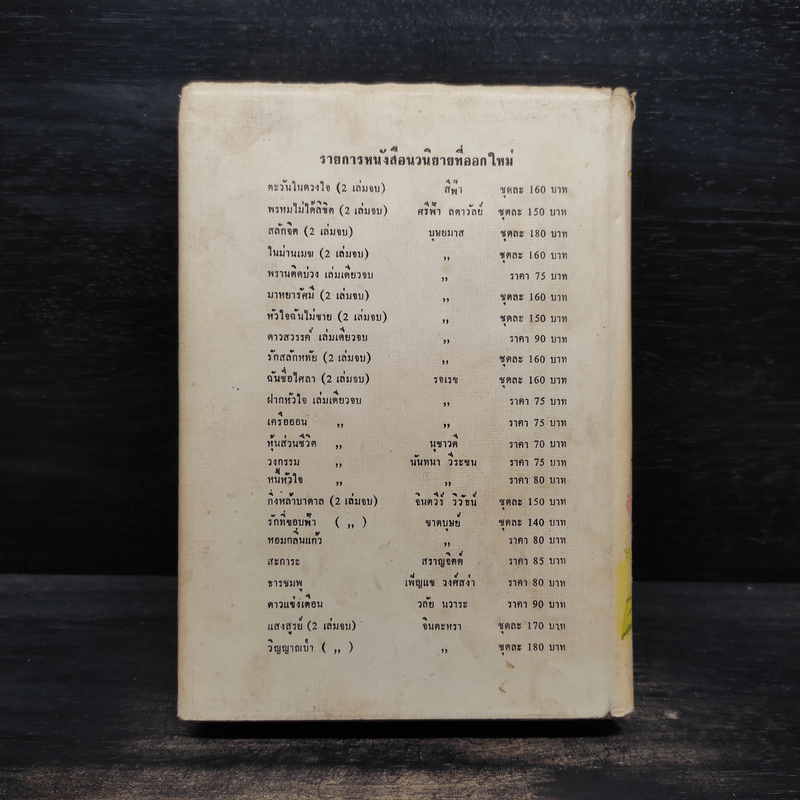 รายการหนังสือนวนิยายที่ออกใหม่
ตะวันในดวงใจ (2 เล่มจบ) สีฟ้า ชุดละ 160 บาท
พรหมไม่ได้ลิขิต (2 เล่มจบ) ศรีฟ้า ลดาวัลย์ ชุดละ 150 บาท
สลักจิต (2 เล่มจบ) บุษยมาส ชุดละ 180 บาท
ในม่านเมฆ (2 เล่มจบ) ,, ชุดละ 160 บาท
พรานติดบ่วง เล่มเดียวจบ ,, ราคา 75 บาท
มาหยารัศมี (2 เล่มจบ) ,, ชุดละ 160 บาท
หัวใจฉันไม่ขาย (2 เล่มจบ) ,, ชุดละ 150 บาท
ดาวสวรรค์ เล่มเดียวจบ ,, ราคา 90 บาท
รักสลักหทัย (2 เล่มจบ) ,, ชุดละ 160 บาท
ฉันชื่อไศลา (2 เล่มจบ) รจเรข ชุดละ 160 บาท
ฝากหัวใจ เล่มเดียวจบ ,, ราคา 75 บาท
เครือออน ,, ,, ราคา 75 บาท
หุ้นส่วนชีวิต ,, นุชาวดี ราคา 70 บาท
วงกรรม ,, นันทนา วีระชน ราคา 75 บาท
หนี้หัวใจ ,, ,, ราคา 80 บาท
กิ่งหล้าบาดาล (2 เล่มจบ) จินตวีร์ วิวัธน์ ชุดละ 150 บาท
รักที่ขอบฟ้า ( ,, ) ชาตบุษย์ ชุดละ 140 บาท
หอมกลิ่นแก้ว ,, ราคา 80 บาท
สะการะ สราญจิตต์ ราคา 85 บาท
ธารชมพู เพ็ญแข วงศ์สง่า ราคา 80 บาท
ดาวแข่งเดือน วลัย นวาระ ราคา 90 บาท
แสงสูรย์ (2 เล่มจบ) จินตะหรา ชุดละ 170 บาท
วิญญาณเป่า ( ,, ) ,, ชุดละ 180 บาท